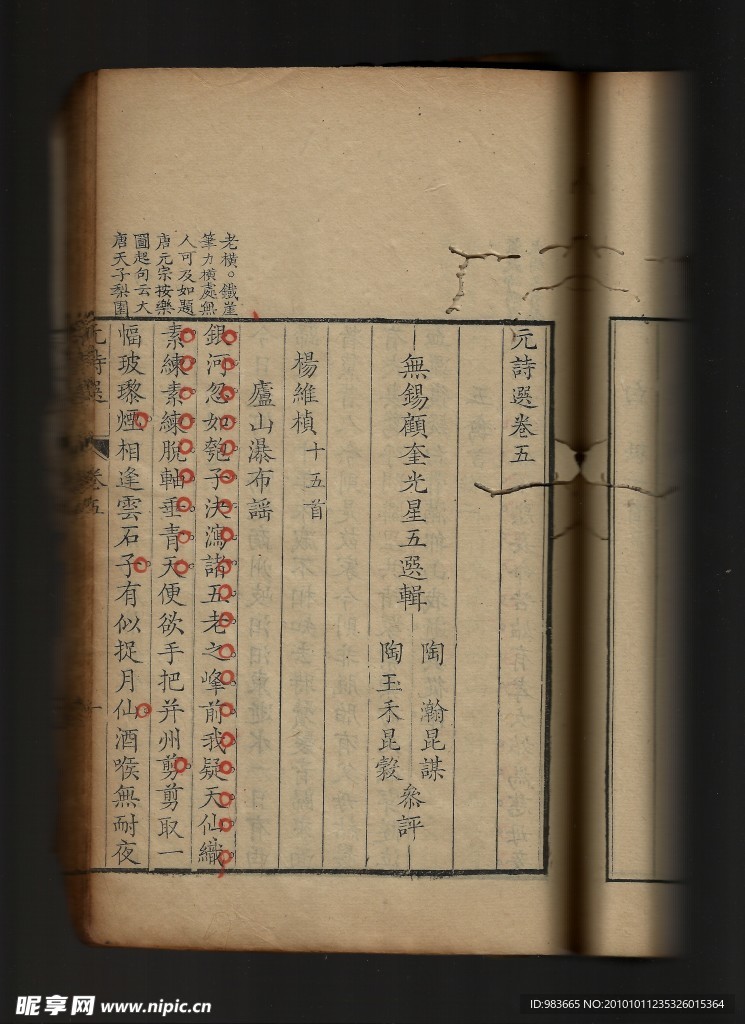 元詩選卷五
無錫顧奎光星五選輯
陶瀚昆謀
陶玉禾昆穀
叅評
楊維楨十五首
廬山瀑布謠
銀河忽如瓠子決瀉諸五老之峰前我疑天仙織
素練素練脫軸垂青天便欲手把并州剪剪取一
幅玻瓈煙相逢雲石子有似捉月仙酒喉無耐夜
老橫。鐵崖
筆力橫處無
人可及如題
唐元宗按樂
圖起句云大
唐天子梨園
元詩選
卷五
一
昵享网 www.nipic.cn
ID:983665 NO:20101011235326015364